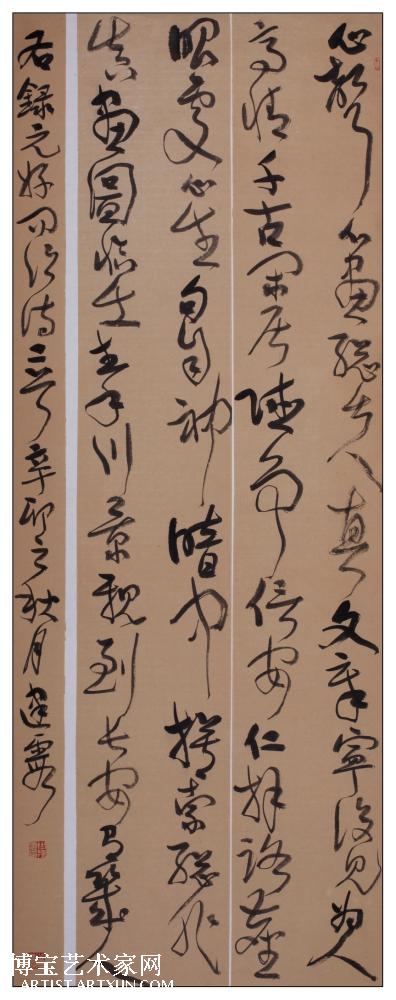 心聲心畫總失真文章寧復見為人
高情千古閑居賦爭信安仁拜路塵
眼處心生句自神暗中摸索總非
真畫圖臨出秦川景親到長安有幾人
右錄元好問論詩二首辛卯之秋月建
博宝艺术家网
ARTIST.ARTXUN.COM